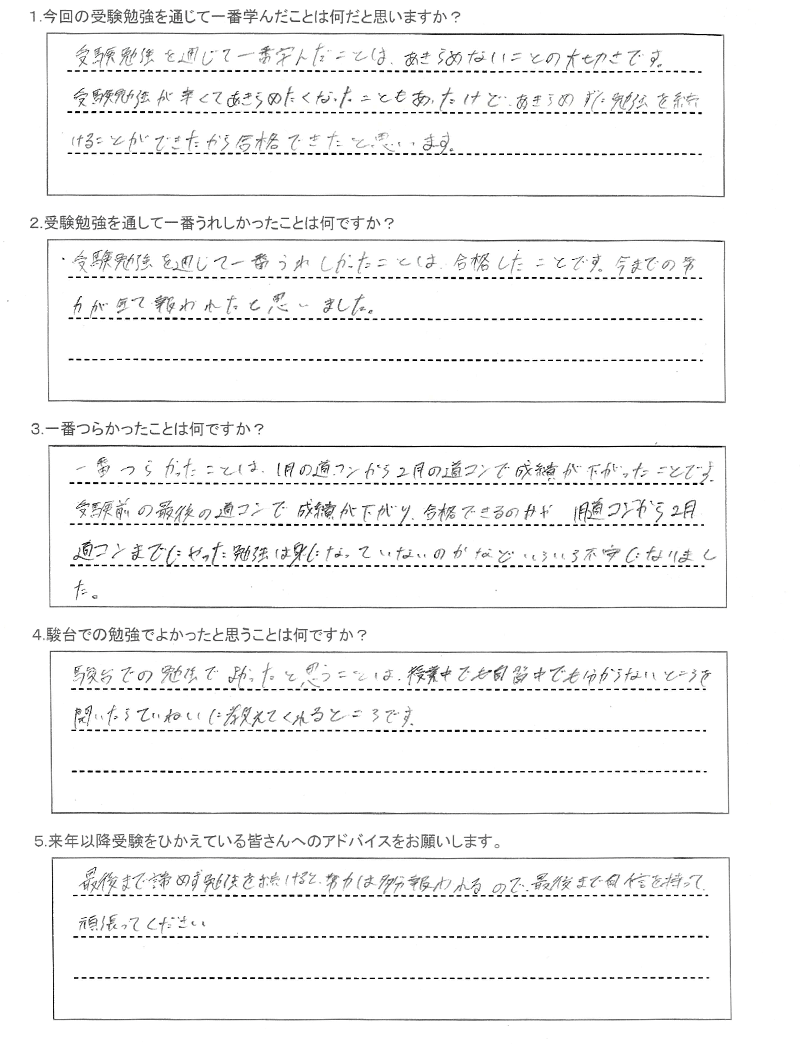 1.今回の受験勉強を通じて一番学んだことは何だと思いますか？
受験勉強を通じて一番学んだことは、あきらめないことの大切さです。
受験勉強が辛くてあきらめたくなったこともあったけど、あきらめずに勉強を続
けることができたから合格できたと思います。
2.受験勉強を通して一番うれしかったことは何ですか？
・受験勉強を通じて一番うれしかったことは、合格したことです。今までの努
力が全て報われたと思いました。
3.一番つらかったことは何ですか？
一番つらかったことは、1月の道コンから2月の道コンで成績が下がったことです。
受験前の最後の道コンで成績が下がり、合格できるのかや 1月道コンから2月
道コンまでにやった勉強は身になっていないのかなどいろいろ不安になりまし
た。
4.駿台での勉強でよかったと思うことは何ですか？
駿台での勉強でよかったと思うことは、授業中でも自習中でも分からないところを
聞いたらていねいに教えてくれるところです。
5.来年以降受験をひかえている皆さんへのアドバイスをお願いします。
最後まで諦めず勉強を続けると、努力は多分報われるので、最後まで自信を持って、
頑張ってください